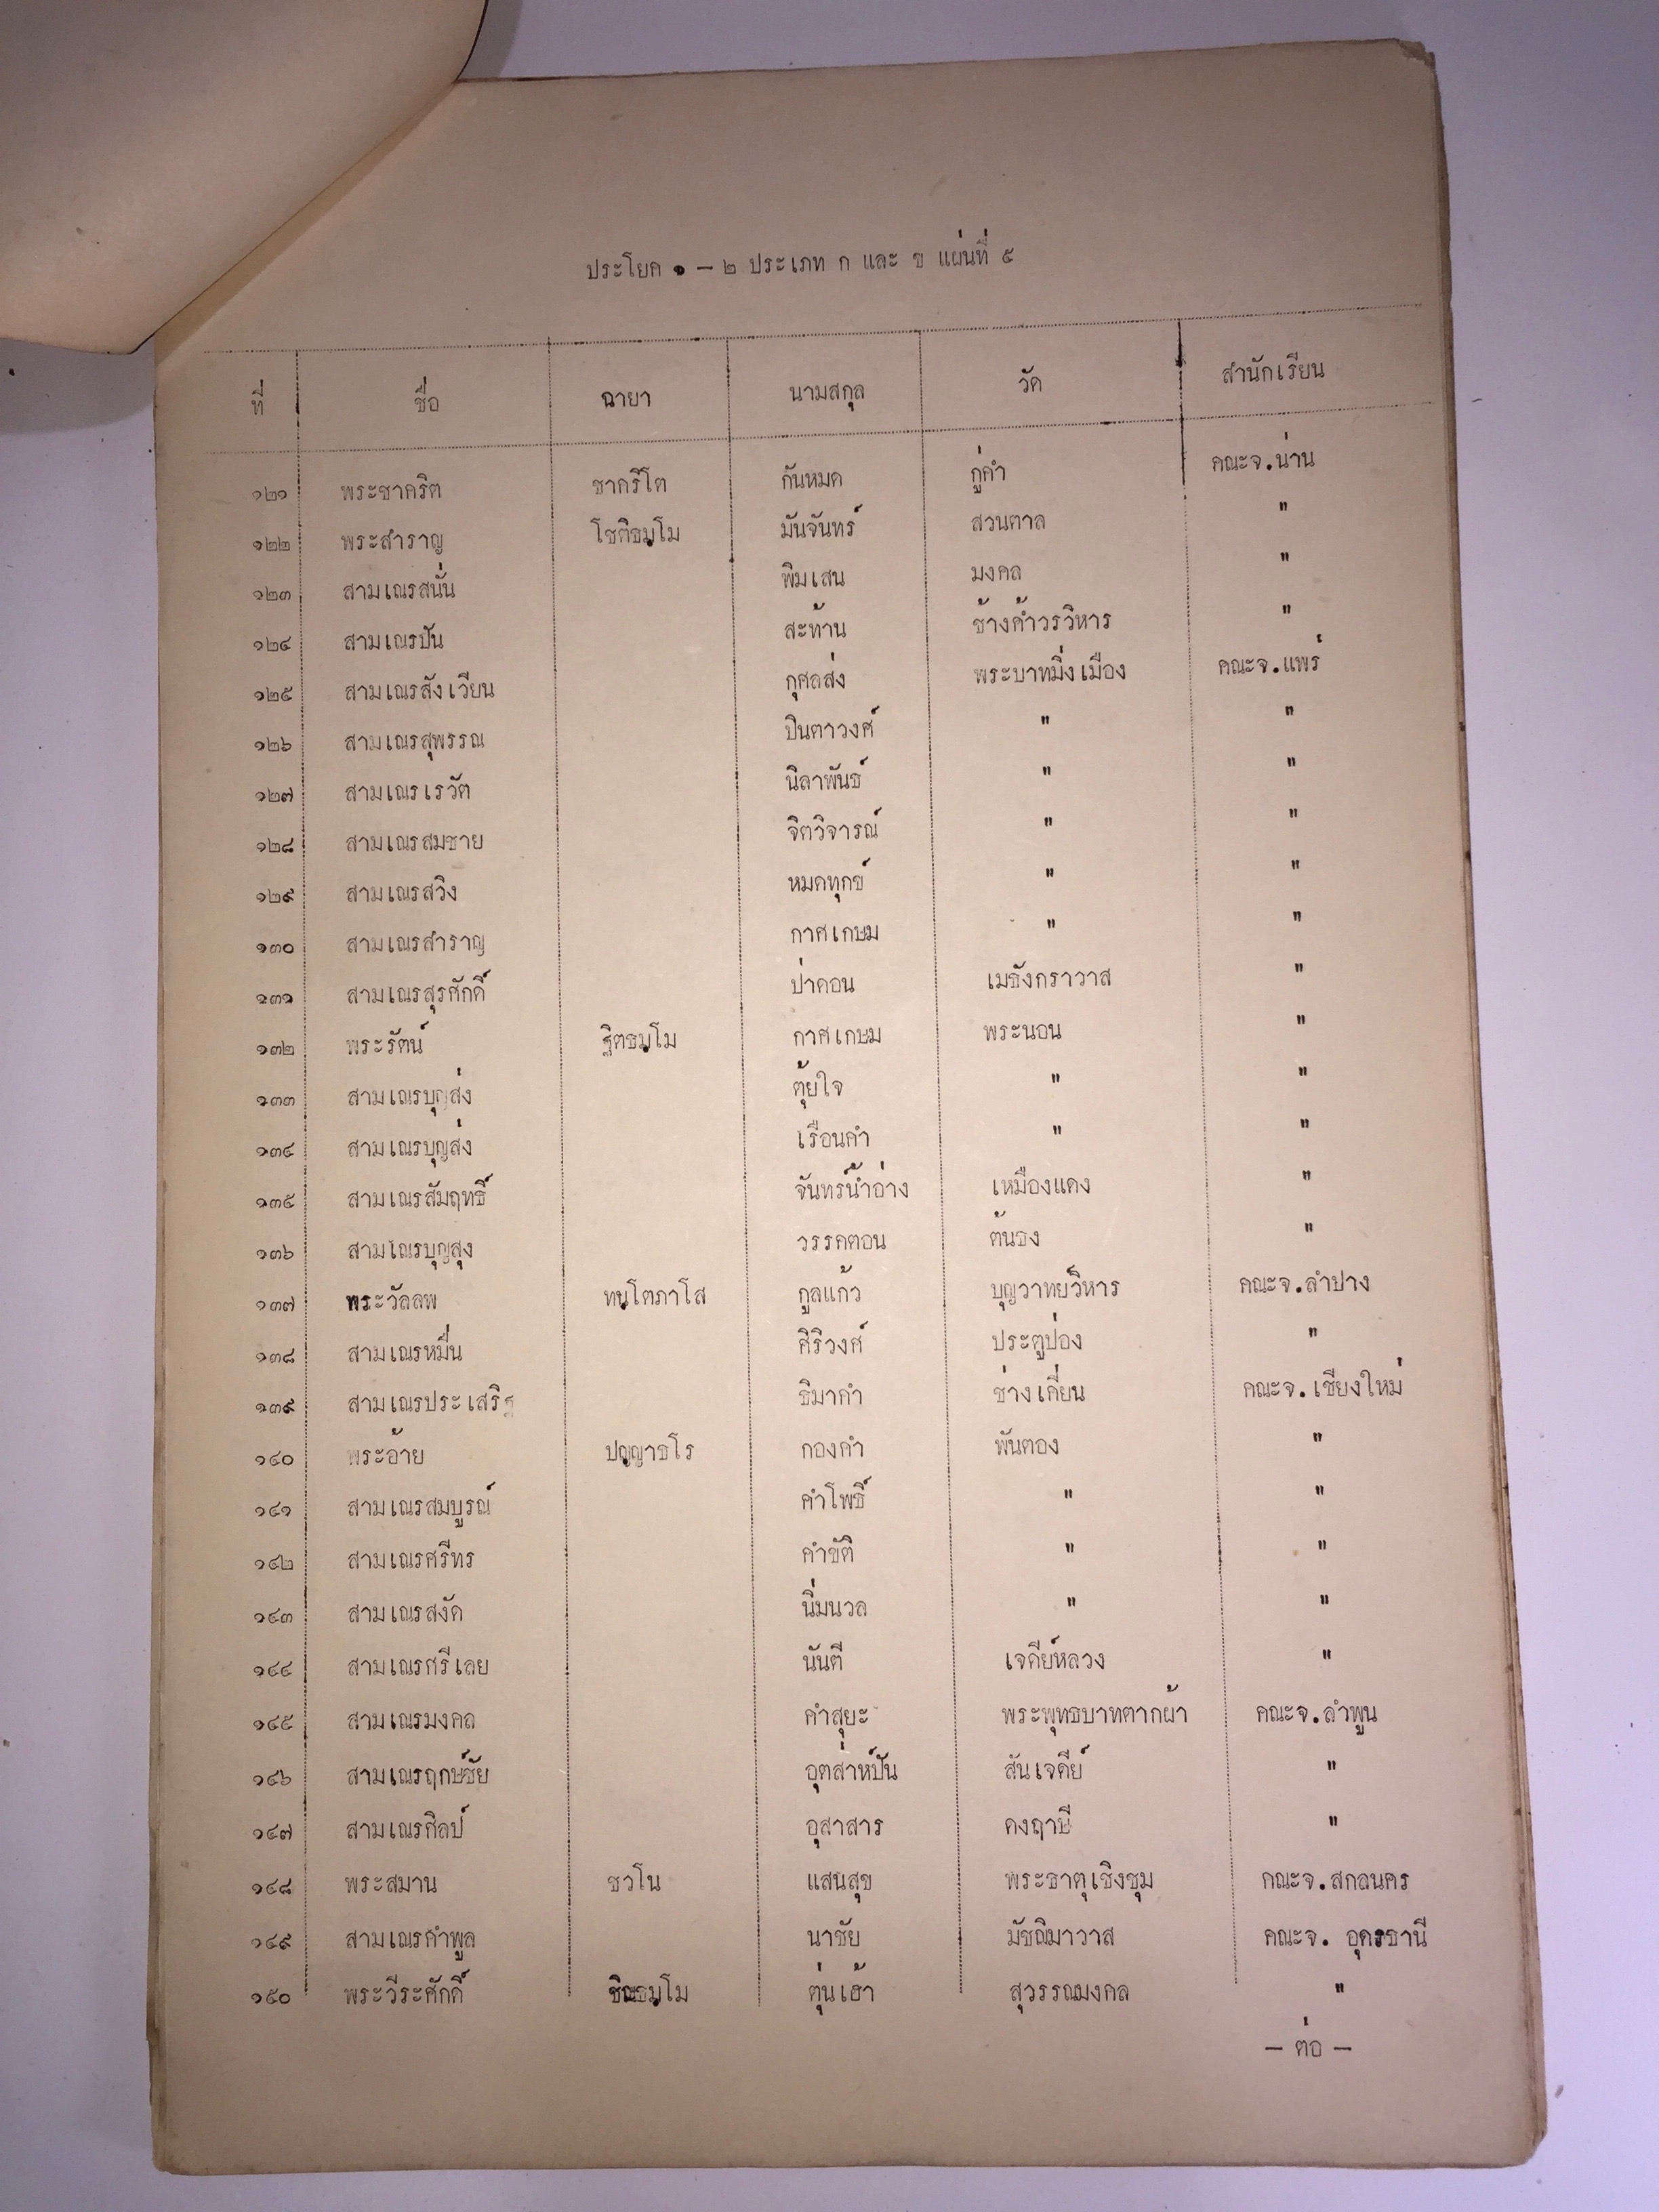 ประโยค ๑ – ๒ ประเภท ก และ ข แผ่นที่ ๕
ที่ ชื่อ ฉายา นามสกุล วัด สำนักเรียน
๑๒๑ พระชาคริต ชาคริโต กันหมด กู่คำ คณะจ.น่าน
๑๒๒ พระสำราญ โชติธมฺโม มันจันทร์ สวนตาล "
๑๒๓ สามเณรสนั่น พิมเสน มงคล "
๑๒๔ สามเณรปัน สะท้าน ช้างค้ำวรวิหาร "
๑๒๕ สามเณรสังเวียน กุศลส่ง พระบาทมิ่งเมือง คณะจ.แพร่
๑๒๖ สามเณรสุพรรณ ปินตาวงศ์ " "
๑๒๗ สามเณรเรวัต นิลาพันธ์ " "
๑๒๘ สามเณรสมชาย จิตวิจารณ์ " "
๑๒๙ สามเณรสวิง หมดทุกข์ " "
๑๓๐ สามเณรสำราญ กาศเกษม " "
๑๓๑ สามเณรสุรศักดิ์ ป่าดอน เมธังกราวาส "
๑๓๒ พระรัตน์ ฐิตธมฺโม กาศเกษม พระนอน "
๑๓๓ สามเณรบุญส่ง ตุ้ยใจ " "
๑๓๔ สามเณรบุญส่ง เรือนคำ " "
๑๓๕ สามเณรสัมฤทธิ์ จันทร์น้ำอ่าง เหมืองแดง "
๑๓๖ สามเณรบุญสุง วรรคตอน ต้นธง "
๑๓๗ พระวัลลพ ทนฺโตภาโส กูลแก้ว บุญวาทย์วิหาร คณะจ.ลำปาง
๑๓๘ สามเณรหมื่น ศิริวงศ์ ประตูป่อง "
๑๓๙ สามเณรประเสริฐ ธิมาคำ ช่างเคี่ยน คณะจ.เชียงใหม่
๑๔๐ พระอ้าย ปญฺญาธโร กองคำ พันตอง "
๑๔๑ สามเณรสมบูรณ์ คำโพธิ์ " "
๑๔๒ สามเณรศรีทร คำขัติ " "
๑๔๓ สามเณรสงัด นิ่มนวล " "
๑๔๔ สามเณรศรีเลย นันตี เจดีย์หลวง "
๑๔๕ สามเณรมงคล คำสุยะ พระพุทธบาทตากผ้า คณะจ.ลำพูน
๑๔๖ สามเณรฤกษ์ชัย อุตส่าห์ปัน สันเจดีย์ "
๑๔๗ สามเณรศิลป์ อุสาสาร ดงฤาษี "
๑๔๘ พระสมาน ชวโน แสนสุข พระธาตุเชิงชุม คณะจ.สกลนคร
๑๔๙ สามเณรคำพูล นาชัย มัชฌิมาวาส คณะจ. อุดรธานี
๑๕๐ พระวีระศักดิ์ ตุ่นเฮ้า สุวรรณมงคล "
– ต่อ –